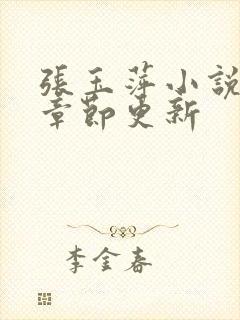 張玉萍小說
章節更新
李金春